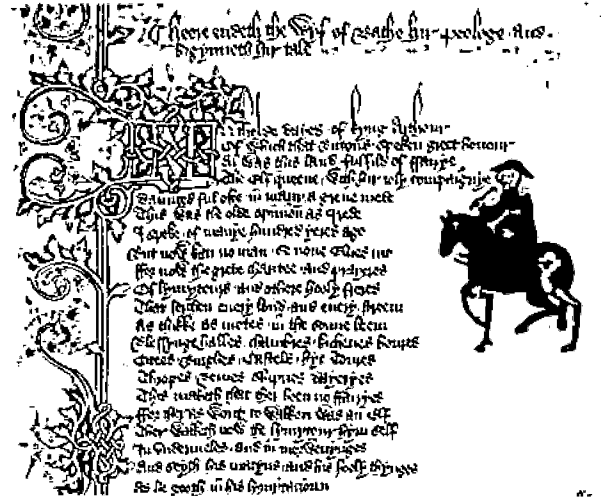 Heere endeth the Wyf of Bathe hir prologe and
bigynneth hir tale
In tholde dayes of kyng Arthour
Of which that Britons speken greet honour
Al was this land fulfild of ffairye
The Elf queene with hir ioly compaignye
Daunced ful ofte in many a grene mede
This was the olde opinion as I rede
I speke of manye hundred yeres ago
But now kan no man se none Elues mo
ffor now the grete charitee and prayeres
Of lymytours and othere hooly freres
That serchen euery lond and euery streem
As thikke as motes in the sonne beem
Blessynge halles chambres kichenes boures
Citees Burghes Castels hye Toures
Thropes Bernes Shipnes dayeryes
This maketh that ther been no ffairyes
ffor ther as wont to walken was an Elf
Ther walketh now the lymytour hym self
In vndermeles and in morwenynges
And seyth his matyns and his hooly thynges
As he gooth in his lymytacioun